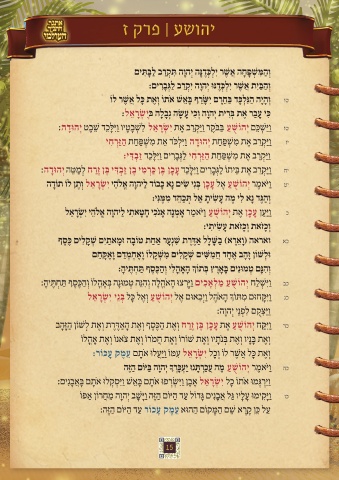 יהושע | פרק ז
אתנ"ך
וְהַמִּשְׁפָּחָה אֲשֶׁר יִלְכְּדֶנָּה יְהוָה תִּקְרַב לַבָּתִּים
וְהַבַּיִת אֲשֶׁר יִלְכְּדֶנּוּ יְהוָה יִקְרַב לַגְּבָרִים:
טו וְהָיָה הַנִּלְכָּד בַּחֵרֶם יִשָּׂרֵף בָּאֵשׁ אֹתוֹ וְאֶת כָּל אֲשֶׁר לוֹ
כִּי עָבַר אֶת בְּרִית יְהוָה וְכִי עָשָׂה נְבָלָה בְּיִשְׂרָאֵל:
טז וַיַּשְׁכֵּם יְהוֹשֻׁעַ בַּבֹּקֶר וַיַּקְרֵב אֶת יִשְׂרָאֵל לִשְׁבָטָיו וַיִּלָּכֵד שֵׁבֶט יְהוּדָה:
יז וַיַּקְרֵב אֶת מִשְׁפַּחַת יְהוּדָה וַיִּלְכֹּד אֵת מִשְׁפַּחַת הַזַּרְחִי
וַיַּקְרֵב אֶת מִשְׁפַּחַת הַזַּרְחִי לַגְּבָרִים וַיִּלָּכֵד זַבְדִּי:
יח וַיַּקְרֵב אֶת בֵּיתוֹ לַגְּבָרִים וַיִּלָּכֵד עָכָן בֶּן כַּרְמִי בֶן זַבְדִּי בֶּן זֶרַח לְמַטֵּה יְהוּדָה:
יט וַיֹּאמֶר יְהוֹשֻׁעַ אֶל עָכָן בְּנִי שִׂים נָא כָבוֹד לַיהוָה אֱלֹהֵי יִשְׂרָאֵל וְתֶן לוֹ תוֹדָה
וְהַגֶּד נָא לִי מֶה עָשִׂיתָ אַל תְּכַחֵד מִמֶּנִּי:
כ וַיַּעַן עָכָן אֶת יְהוֹשֻׁעַ וַיֹּאמַר אָמְנָה אָנֹכִי חָטָאתִי לַיהוָה אֱלֹהֵי יִשְׂרָאֵל
וְכָזֹאת וְכָזֹאת עָשִׂיתִי:
כא ואראה (וָאֵרֶא) בַשָּׁלָל אַדֶּרֶת שִׁנְעָר אַחַת טוֹבָה וּמָאתַיִם שְׁקָלִים כֶּסֶף
וּלְשׁוֹן זָהָב אֶחָד חֲמִשִּׁים שְׁקָלִים מִשְׁקָלוֹ וָאֶחְמְדֵם וָאֶקָּחֵם
וְהִנָּם טְמוּנִים בָּאָרֶץ בְּתוֹךְ הָאָהֳלִי וְהַכֶּסֶף תַּחְתֶּיהָ:
כב וַיִּשְׁלַח יְהוֹשֻׁעַ מַלְאָכִים וַיָּרֻצוּ הָאֹהֱלָה וְהִנֵּה טְמוּנָה בְּאָהֳלוֹ וְהַכֶּסֶף תַּחְתֶּיהָ:
כג וַיִּקָּחוּם מִתּוֹךְ הָאֹהֶל וַיְבִאוּם אֶל יְהוֹשֻׁעַ וְאֶל כָּל בְּנֵי יִשְׂרָאֵל
וַיַּצִּקֻם לִפְנֵי יְהוָה:
כד וַיִּקַּח יְהוֹשֻׁעַ אֶת עָכָן בֶּן זֶרַח וְאֶת הַכֶּסֶף וְאֶת הָאַדֶּרֶת וְאֶת לְשׁוֹן הַזָּהָב
וְאֶת בָּנָיו וְאֶת בְּנֹתָיו וְאֶת שׁוֹרוֹ וְאֶת חֲמֹרוֹ וְאֶת צֹאנוֹ וְאֶת אָהֳלוֹ
וְאֶת כָּל אֲשֶׁר לוֹ וְכָל יִשְׂרָאֵל עִמּוֹ וַיַּעֲלוּ אֹתָם עֵמֶק עָכוֹר:
כה וַיֹּאמֶר יְהוֹשֻׁעַ מֶה עֲכַרְתָּנוּ יַעְכֳּרְךָ יְהוָה בַּיּוֹם הַזֶּה
וַיִּרְגְּמוּ אֹתוֹ כָל יִשְׂרָאֵל אֶבֶן וַיִּשְׂרְפוּ אֹתָם בָּאֵשׁ וַיִּסְקְלוּ אֹתָם בָּאֲבָנִים:
כו וַיָּקִימוּ עָלָיו גַּל אֲבָנִים גָּדוֹל עַד הַיּוֹם הַזֶּה וַיָּשָׁב יְהוָה מֵחֲרוֹן אַפּוֹ
עַל כֵּן קָרָא שֵׁם הַמָּקוֹם הַהוּא עֵמֶק עָכוֹר עַד הַיּוֹם הַזֶּה:
15